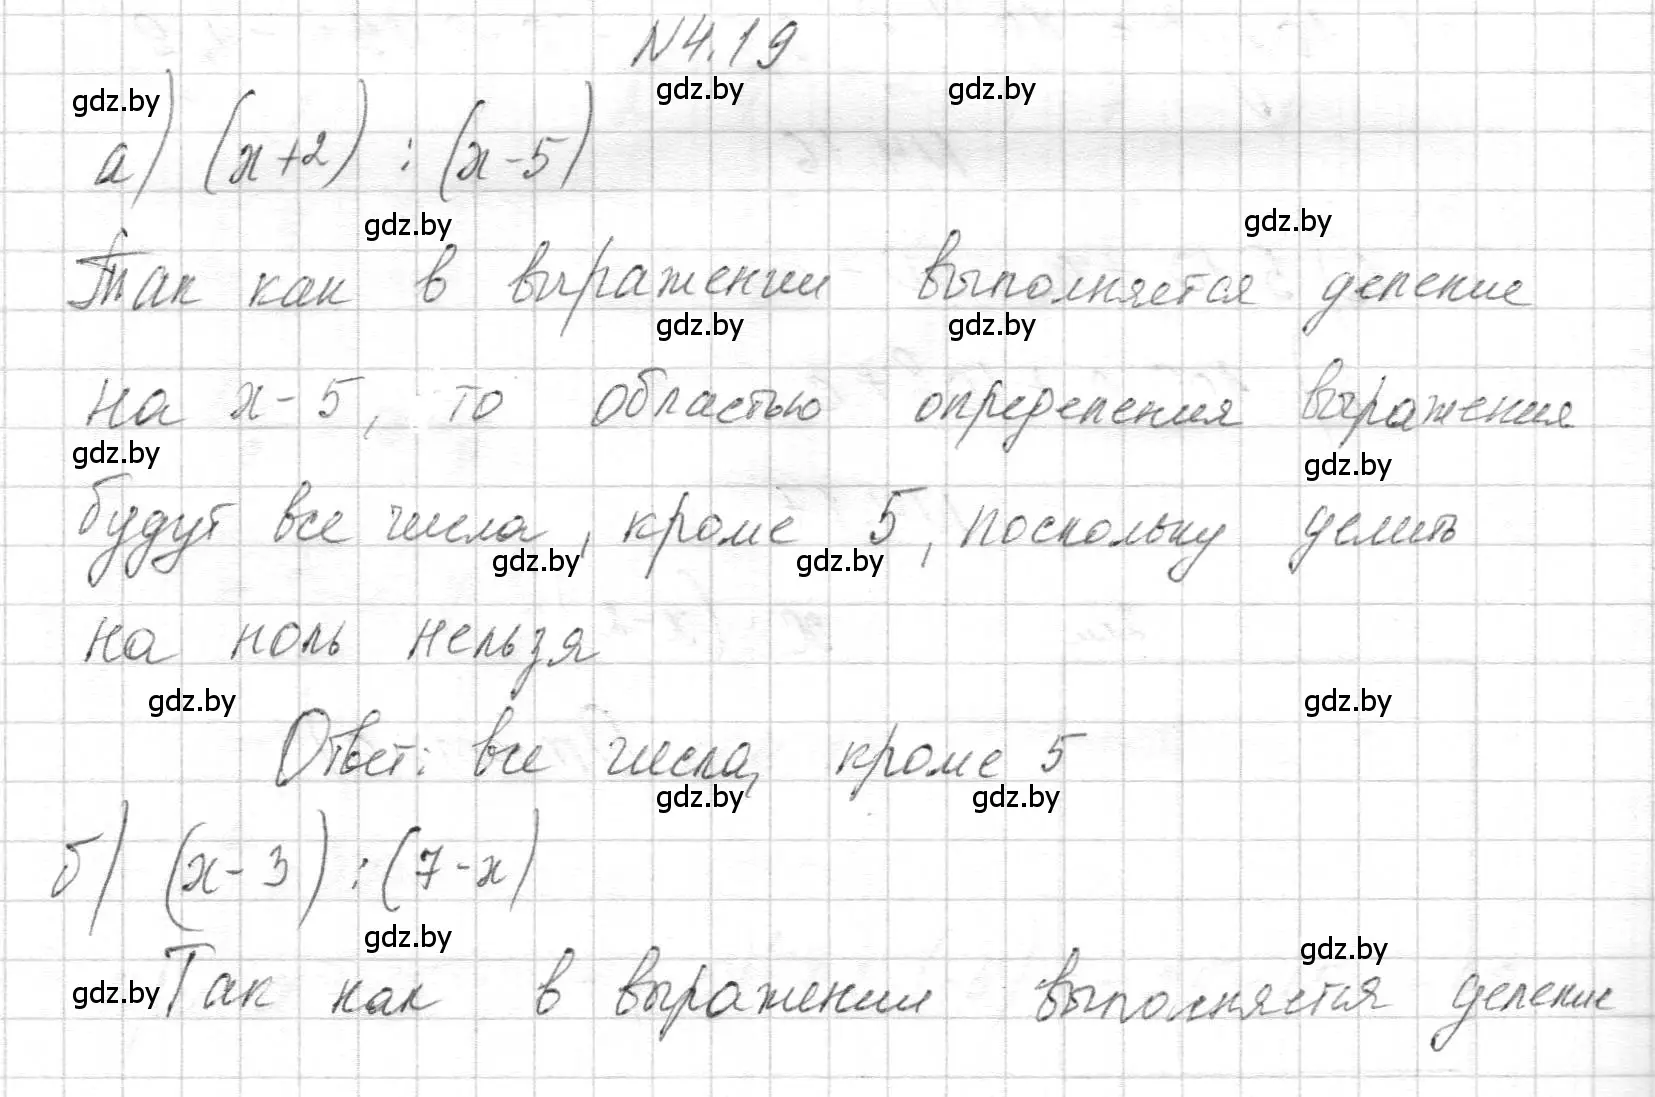 N4.19
gdz.by gdz.by gdz.by
а) (x+2) : (x-5)
gdz.by gdz.by
Так как в выражении выполняется деление
gdz.by gdz.by
на x-5, то областью определения выражения
gdz.by gdz.by
будут все числа, кроме 5, поскольку делить
gdz.by gdz.by
на ноль нельзя
gdz.by gdz.by
Ответ: все числа, кроме 5
gdz.by gdz.by
б) (x-3) : (7-x)
gdz.by gdz.by
gdz.by Так как в выражении выполняется деление